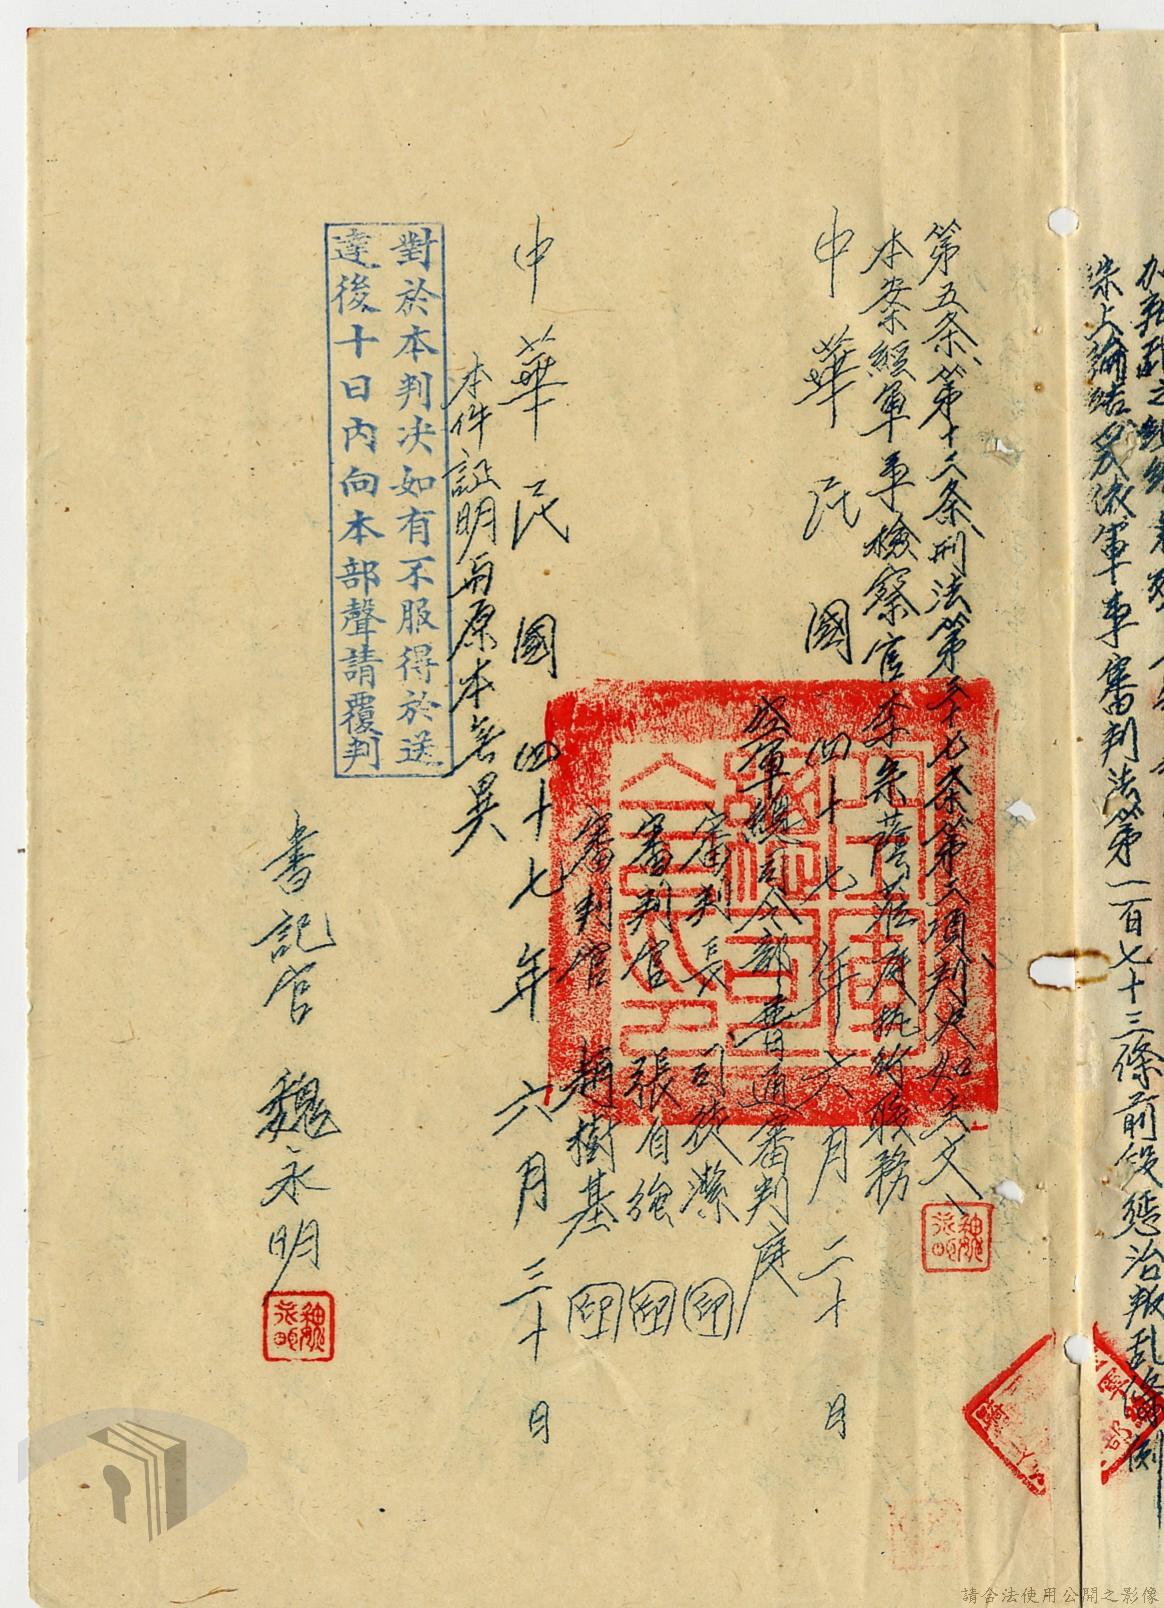 綜上論結爰依軍事審判法第一百七十三條前段懲治叛乱條例
第五条、第十二条、刑法第三十七条第二項判决如主文、
本案經軍事檢察官李宗蔭蒞庭执行職務
中華民國四十七年六月二十日
軍總司令部普通審判庭
審判長 司徒潔 印
審判官 張自強 印
審判官 趙樹基 印
中華民國四十七年六月三十日
本件証明與原本無異
對於本判决如有不服得於送
達後十日內向本部聲請覆判
書記官 魏永明
請合法使用公開之影像